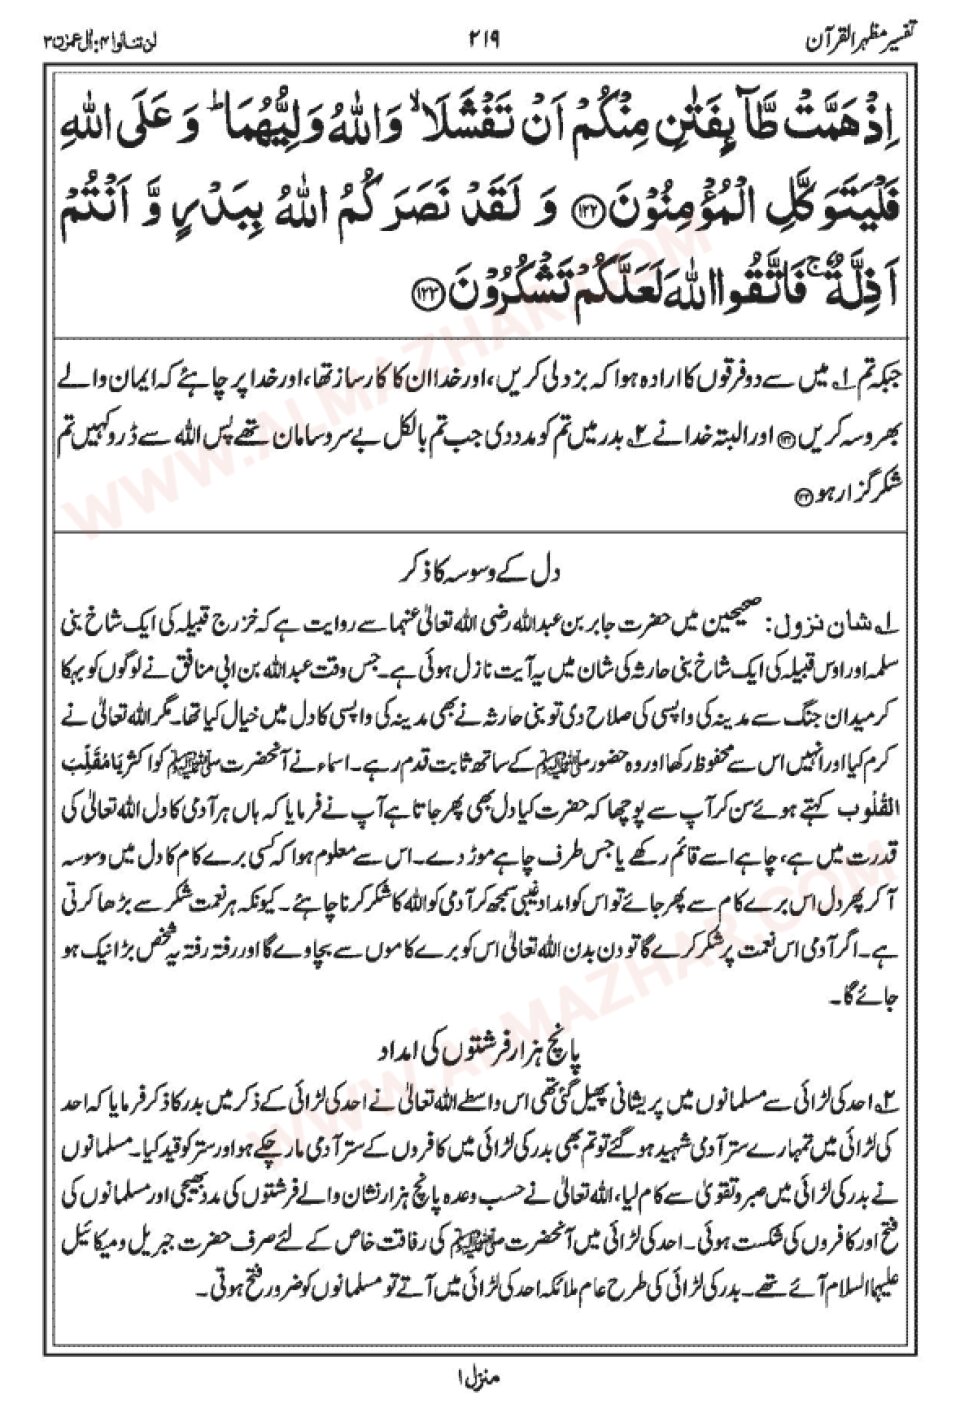 تفسیر مظہر القرآن ۲۱۹ لن تنالوا ۴: اٰل عمرٰن ۳
اِذْ هَمَّتْ طَّآىِٕفَتٰنِ مِنْكُمْ اَنْ تَفْشَلَا ۙ وَاللّٰهُ وَلِیُّهُمَا ؕ وَ عَلَى اللّٰهِ
فَلْیَتَوَكَّلِ الْمُؤْمِنُوْنَ ﴿۱۲۲﴾ وَ لَقَدْ نَصَرَكُمُ اللّٰهُ بِبَدْرٍ وَّ اَنْتُمْ
اَذِلَّةٌ ۚ فَاتَّقُوا اللّٰهَ لَعَلَّكُمْ تَشْكُرُوْنَ ﴿۱۲۳﴾
جبکہ تم ۱ میں سے دو فرقوں کا ارادہ ہوا کہ بزدلی کریں، اور خدا ان کا کارساز تھا، اور خدا پر چاہئے کہ ایمان والے
بھروسہ کریں ﴿۱۲۲﴾ اور البتہ خدا نے ۲ بدر میں تم کو مدد دی جب تم بالکل بے سروسامان تھے پس اللہ سے ڈرو کہیں تم
شکر گزار ہو ﴿۱۲۳﴾
دل کے وسوسہ کا ذکر
۱ شان نزول: صحیحین میں حضرت جابر بن عبداللہ رضی اللہ تعالیٰ عنہما سے روایت ہے کہ خزرج قبیلہ کی ایک شاخ بنی
سلمہ اور اوس قبیلہ کی ایک شاخ بنی حارثہ کی شان میں یہ آیت نازل ہوئی ہے۔ جس وقت عبداللہ بن ابی منافق نے لوگوں کو بہکا
کر میدان جنگ سے مدینہ کی واپسی کی صلاح دی تو بنی حارثہ نے بھی مدینہ کی واپسی کا دل میں خیال کیا تھا۔ مگر اللہ تعالیٰ نے
کرم کیا اور انہیں اس سے محفوظ رکھا اور وہ حضور ﷺ کے ساتھ ثابت قدم رہے۔ اسماء نے آنحضرت ﷺ کو اکثر یَا مُقَلِّبَ
القُلُوب کہتے ہوئے سن کر آپ سے پوچھا کہ حضرت کیا دل بھی پھر جاتا ہے آپ نے فرمایا کہ ہاں ہر آدمی کا دل اللہ تعالیٰ کی
قدرت میں ہے، چاہے اسے قائم رکھے یا جس طرف چاہے موڑ دے۔ اس سے معلوم ہوا کہ کسی برے کام کا دل میں وسوسہ
آ کر پھر دل اس برے کام سے پھر جائے تو اس کو امداد غیبی سمجھ کر آدمی کو اللہ کا شکر کرنا چاہئے۔ کیونکہ ہر نعمت شکر سے بڑھا کرتی
ہے۔ اگر آدمی اس نعمت پر شکر کرے گا تو دن بدن اللہ تعالیٰ اس کو برے کاموں سے بچاوے گا اور رفتہ رفتہ یہ شخص بڑا نیک ہو
جائے گا۔
پانچ ہزار فرشتوں کی امداد
۲ احد کی لڑائی سے مسلمانوں میں پریشانی پھیل گئی تھی اس واسطے اللہ تعالیٰ نے احد کی لڑائی کے ذکر میں بدر کا ذکر فرمایا کہ احد
کی لڑائی میں تمہارے ستر آدمی شہید ہو گئے تو تم بھی بدر کی لڑائی میں کافروں کے ستر آدمی مار چکے ہو اور ستر کو قید کیا۔ مسلمانوں
نے بدر کی لڑائی میں صبر و تقویٰ سے کام لیا، اللہ تعالیٰ نے حسب وعدہ پانچ ہزار نشان والے فرشتوں کی مدد بھیجی اور مسلمانوں کی
فتح اور کافروں کی شکست ہوئی۔ احد کی لڑائی میں آنحضرت ﷺ کی رفاقت خاص کے لئے صرف حضرت جبریل و میکائیل
علیہما السلام آئے تھے۔ بدر کی لڑائی کی طرح عام ملائکہ احد کی لڑائی میں آتے تو مسلمانوں کو ضرور فتح ہوتی۔
منزل ۱
WWW.ALMAZHAR.COM
WWW.ALMAZHAR.COM